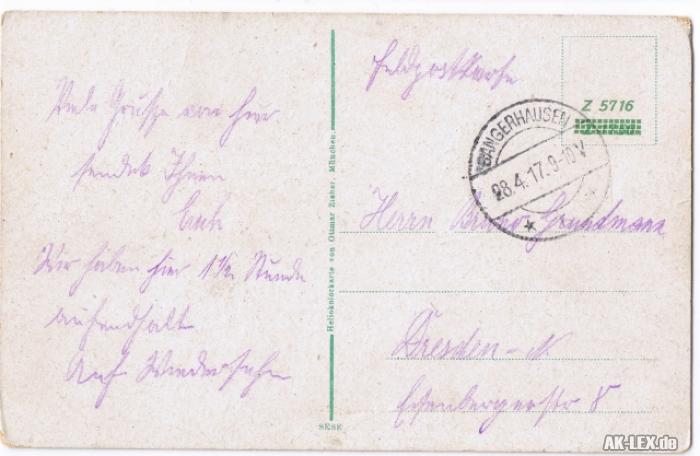 Viele Grüsse von hier
sendet Ihnen
Wir haben hier 1½ Stunde
aufendhalt
Auf Wiedersehn
Heliokolorkarte von Ottmar Zieher, München.
SESE
Feldpostkarte
Z 5716
SANGERHAUSEN
28.4.17.9-10V
Herrn Bruno Grundmann
Dresden-N
Eisenbergerstr 8
AK-LEX.de